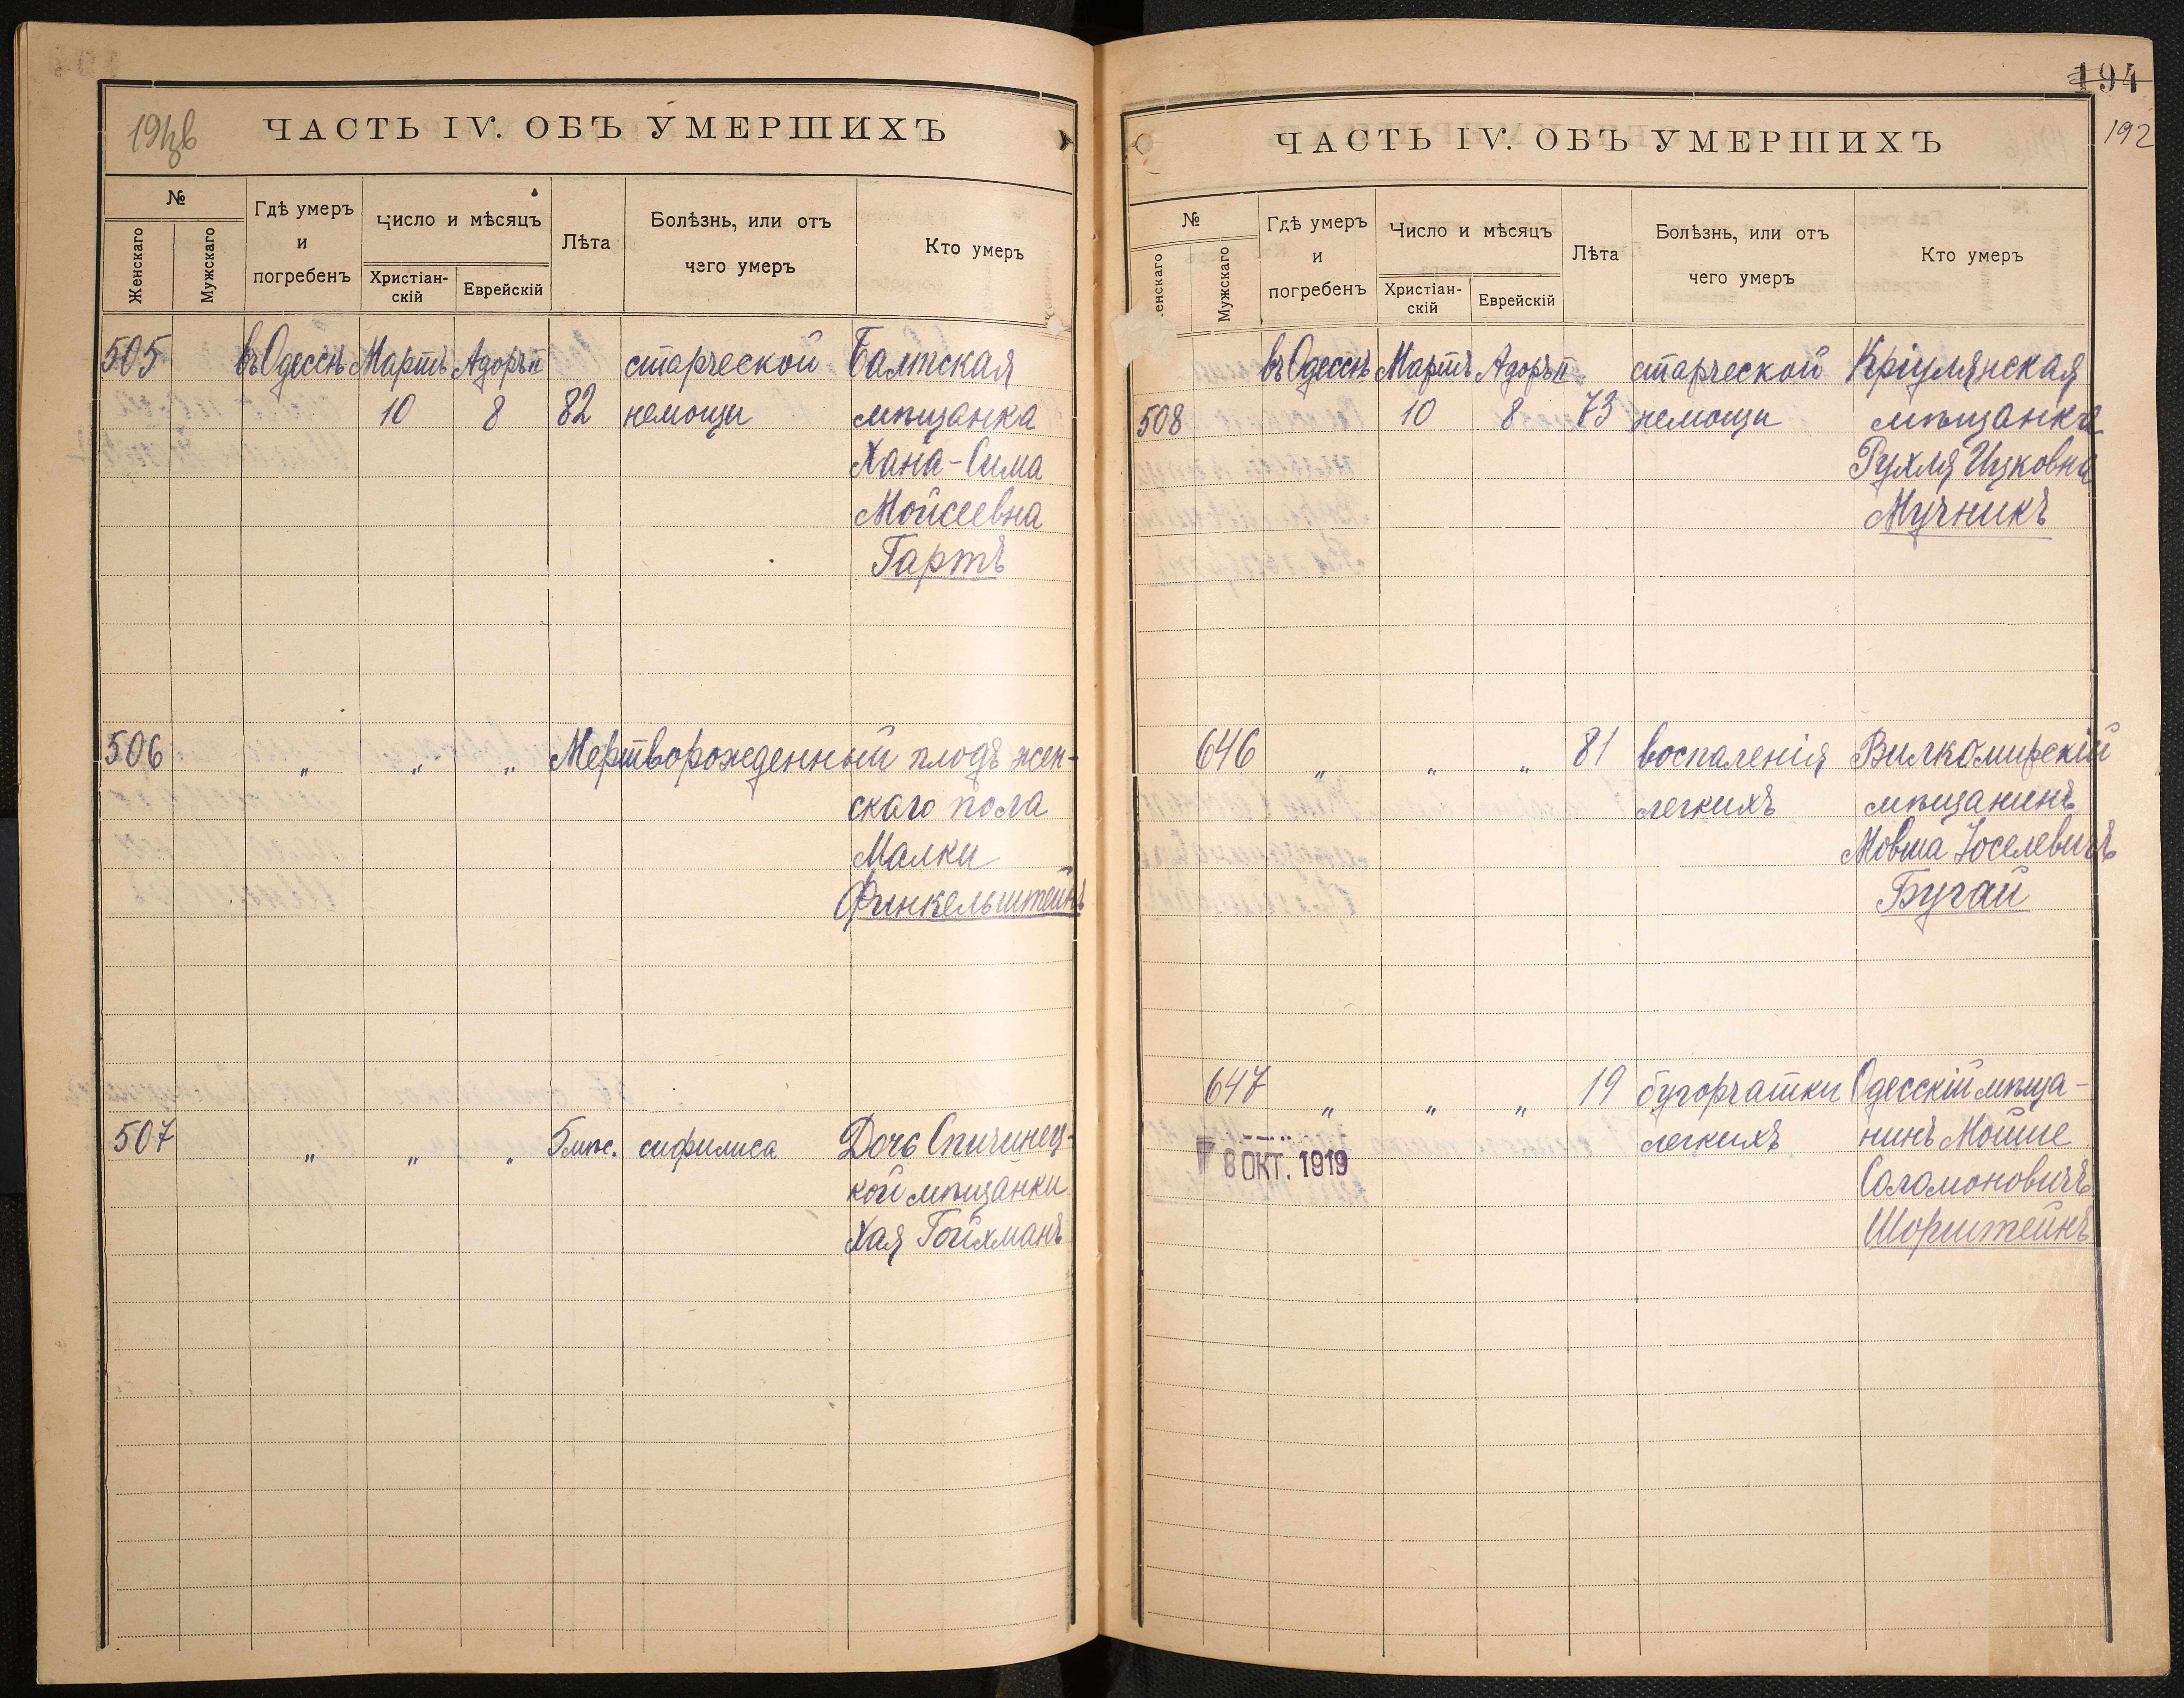 ЧАСТЬ IV. ОБЪ УМЕРШИХЪ
№
Женскаго
Мужскаго
Гдѣ умеръ
и
погребенъ
Число и мѣсяцъ
Христіан-
скій
Еврейскій
Лѣта
Болѣзнь, или отъ
чего умеръ
Кто умеръ
505 въ Одессѣ Мартъ Адоръ II старческой Балтская
10 8 82 немощи мѣщанка
Хана-Сима
Мойсеевна
Гартъ
506 " " " Мертворожденный плодъ жен-
скаго пола
Малки
Финкельштейнъ
507 " " " 5 мѣс. сифилиса Дочь Спичинец-
кой мѣщанки
Хая Гойхманъ
194
192
ЧАСТЬ IV. ОБЪ УМЕРШИХЪ
№
енскаго
Мужскаго
Гдѣ умеръ
и
погребенъ
Число и мѣсяцъ
Христіан-
скій
Еврейскій
Лѣта
Болѣзнь, или отъ
чего умеръ
Кто умеръ
въ Одессѣ Мартъ Адоръ II старческой Кріулянская
508 10 8 73 немощи мѣщанка
Рухля Ицковна
Мучникъ
646 " " " 81 воспаленія Вилкомирскій
легкихъ мѣщанинъ
Мовша Іоселевичъ
Бугай
647 " " " 19 бугорчатки Одесскій мѣща-
легкихъ нинъ Мойше
Соломоновичъ
Шорштейнъ
8 ОКТ. 1919